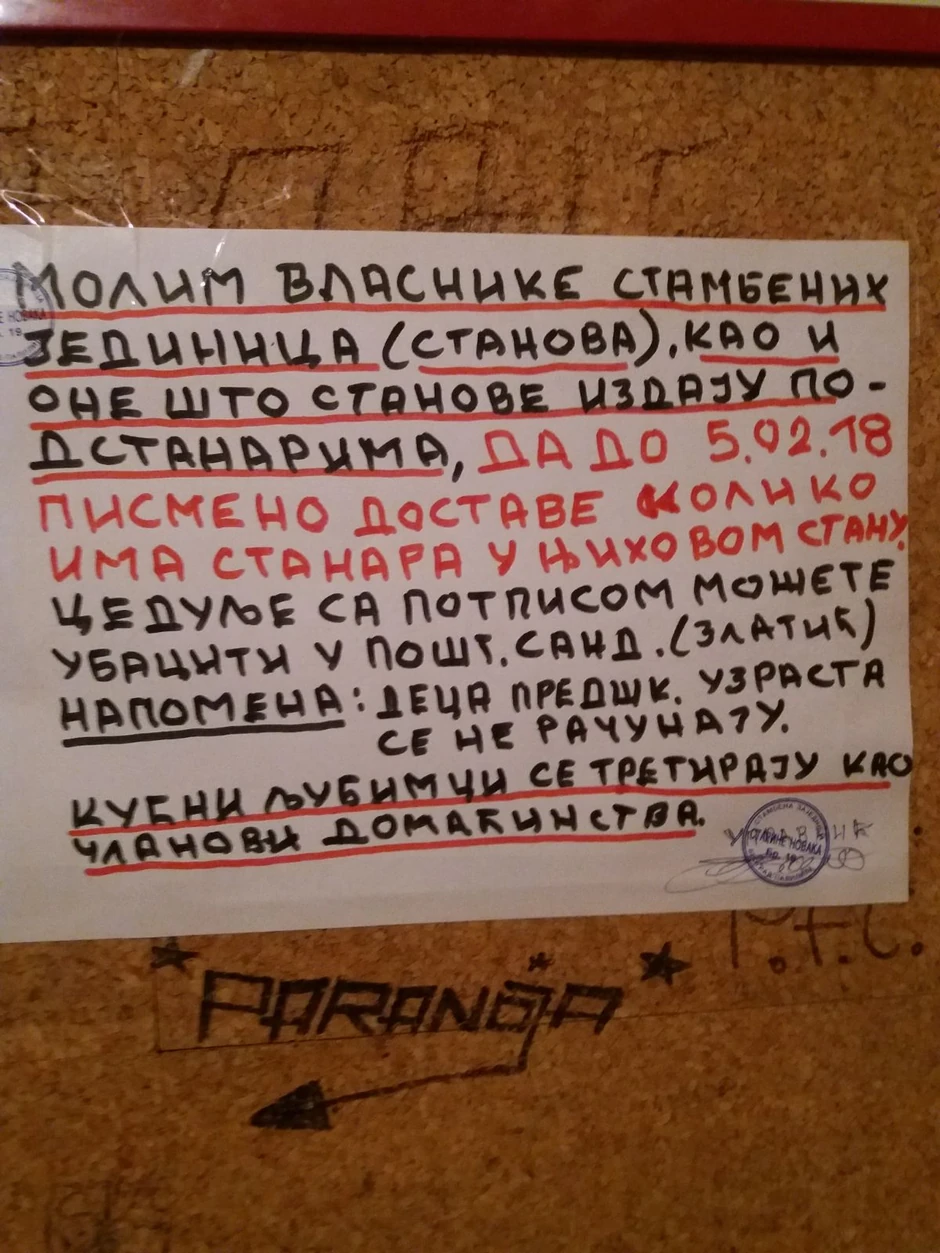 МОЛИМ ВЛАСНИКЕ СТАМБЕНИХ
ЈЕДИНИЦА (СТАНОВА), КАО И
ОНЕ ШТО СТАНОВЕ ИЗДАЈУ ПО-
ДСТАНАРИМА, ДА ДО 5.02.18
ПИСМЕНО ДОСТАВЕ КОЛИКО
ИМА СТАНАРА У ЊИХОВОМ СТАНУ.
ЦЕДУЉЕ СА ПОТПИСОМ МОЖЕТЕ
УБАЦИТИ У ПОШТ. САНД. (ЗЛАТИЋ)
НАПОМЕНА: ДЕЦА ПРЕДШК. УЗРАСТА
СЕ НЕ РАЧУНАЈУ.
КУЋНИ ЉУБИМЦИ СЕ ТРЕТИРАЈУ КАО
ЧЛАНОВИ ДОМАЋИНСТВА.
СТАМБЕНА ЗАЈЕДНИЦА
СТАРИНЕ НОВАКА
PARANOJA
P.F.C.